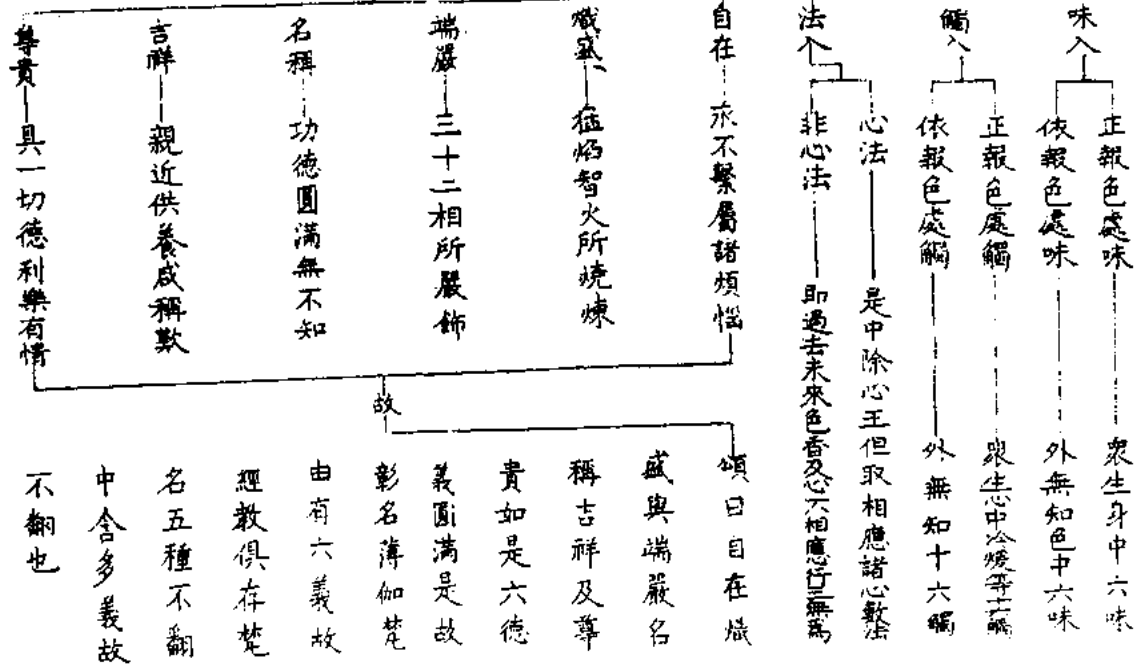 味入
正報色處味
眾生身中六味
依報色處味
外無知色中六味
觸入
正報色處觸
眾生身中冷煖等十六觸
依報色處觸
外無知十六觸
法入
心法
是中除心王但取相應諸心數法
非心法
即過去未來色香及心不相應行三無為
自在
永不繫屬諸煩惱
熾盛
猛焰智火所燒煉
端嚴
三十二相所嚴飾
名稱
功德圓滿無不知
吉祥
親近供養咸稱歎
尊貴
具一切德利樂有情
故
頌曰自在熾
盛與端嚴名
稱吉祥及尊
貴如是六德
義圓滿是故
彰名薄伽梵
由有六義故
經教俱存梵
名五種不翻
中含多義故
不翻也